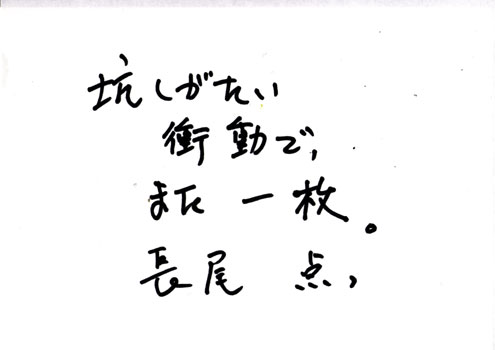 坑しがたい
衝動で,
また 一枚。
長尾 点,